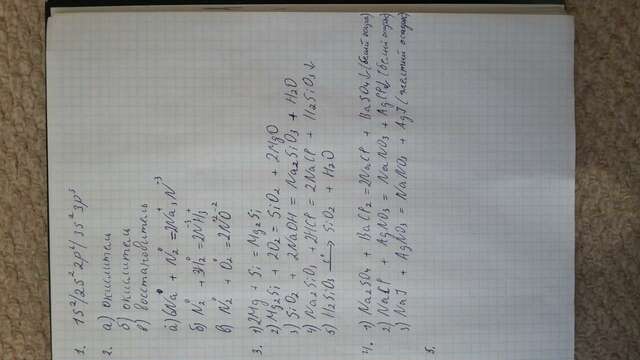 1. 1S²/2S²2p⁶/3S²3p³
2. а) окислители
б) окислители
в) восстановитель
а) 6Na⁰ + N₂⁰ = 2Na₃⁺N⁻³
б) N₂⁰ + 3H₂⁰ = 2N⁻³H₃⁺
в) N₂⁰ + O₂⁰ = 2N⁺²O⁻²
3. 1) 2Mg + Si = Mg₂Si
2) Mg₂Si + 2O₂ = SiO₂ + 2MgO
3) SiO₂ + 2NaOH = Na₂SiO₃ + H₂O
4) Na₂SiO₃ + 2HCl = 2NaCl + H₂SiO₃↓
5) H₂SiO₃ →ᵗ SiO₂ + H₂O
4. 1) Na₂SO₄ + BaCl₂ = 2NaCl + BaSO₄↓ (белый осадок)
2) NaCl + AgNO₃ = NaNO₃ + AgCl↓ (белый осадок)
3) NaJ + AgNO₃ = NaNO₃ + AgJ (желтый осадок)
5.